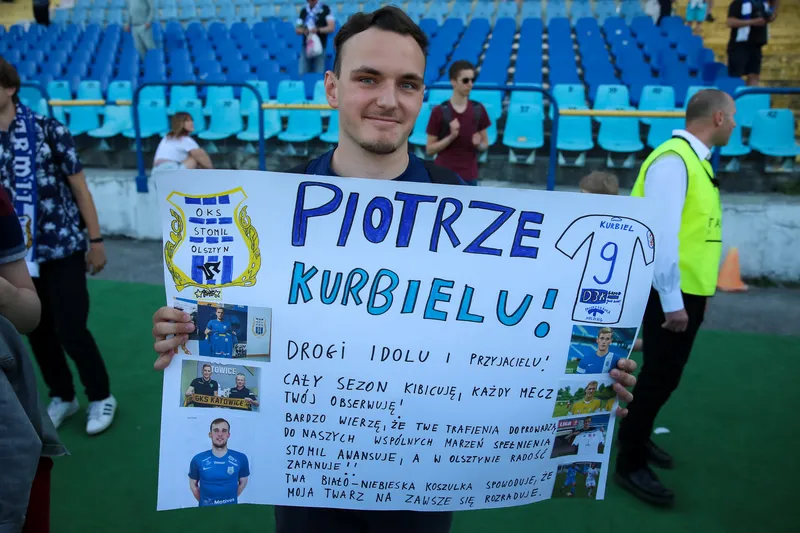 OKS
STOMIL
OLSZTYN
PIOTRZE
KURBIELU!
KURBIEL
9
DROGI IDOLU I PRZYJACIELU!
CAŁY SEZON KIBICUJĘ, KAŻDY MECZ
TWÓJ OBSERWUJĘ!
BARDZO WIERZĘ, ŻE TWE TRAFIENIA DOPROWADZĄ
DO NASZYCH WSPÓLNYCH MARZEŃ SPEŁNIENIA
STOMIL AWANSUJE, A W OLSZTYNIE RADOŚĆ
ZAPANUJE!!
TWA BIAŁO-NIEBIESKA KOSZULKA SPOWODUJE, ŻE
MOJA TWARZ NA ZAWSZE SIĘ ROZRADUJE.
GKS KATOWICE